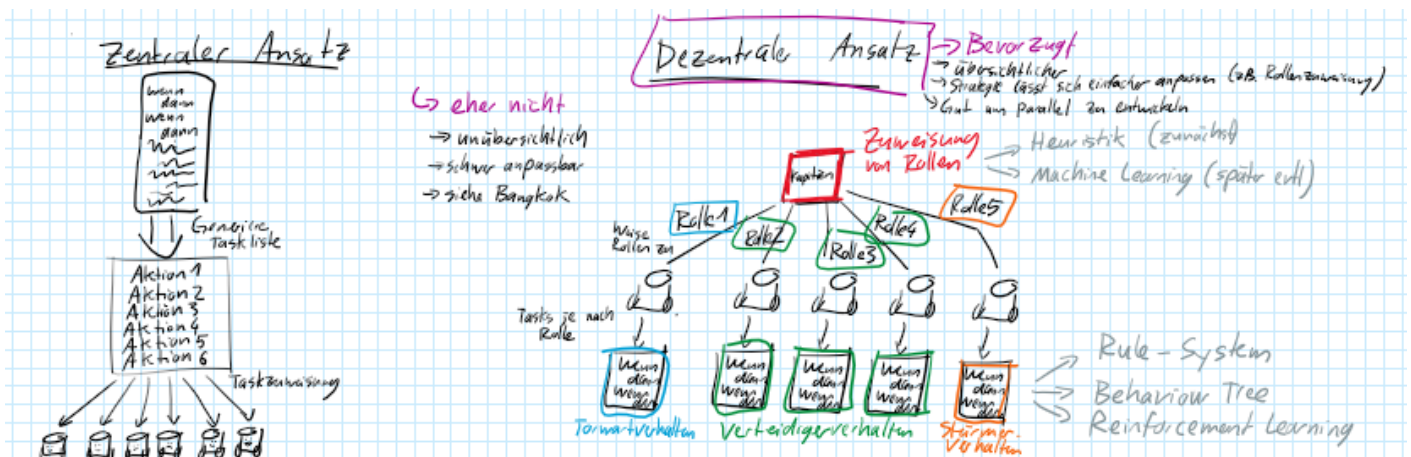 Zentraler Ansatz
wenn
dann
wenn
dann
Generiere
Taskliste
Aktion 1
Aktion 2
Aktion 3
Aktion 4
Aktion 5
Aktion 6
Taskzuweisung
eher nicht
→ unübersichtlich
→ schwer anpassbar
→ siehe Bangkok
Dezentraler Ansatz
→ Bevorzugt
→ übersichtlicher
→ Strategie lässt sich einfacher anpassen (z.B. Rollenzuweisung)
→ Gut um parallel zu entwickeln
Kapitän
Zuweisung
von Rollen
→ Heuristik (zunächst)
→ Machine Learning (später evtl)
Weise
Rollen zu
Rolle1
Rolle2
Rolle3
Rolle4
Rolle5
Tasks je nach
Rolle
Wenn
dann
Wenn
dann
Wenn
dann
Wenn
dann
Wenn
dann
Wenn
dann
Wenn
dann
Wenn
dann
Wenn
dann
Wenn
dann
Torwartverhalten
Verteidigerverhalten
Stürmer-
Verhalten
Rule-System
Behaviour Tree
Reinforcement Learning